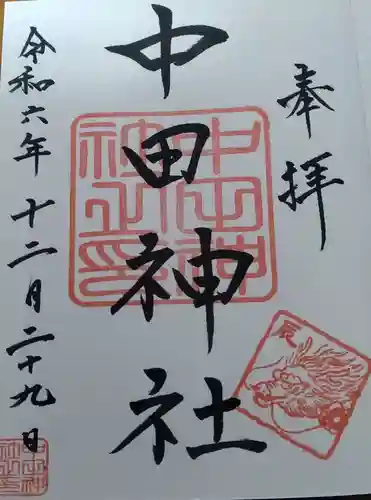 奉拝
中田神社
令和六年十二月二十九日
中田神社之印
辰